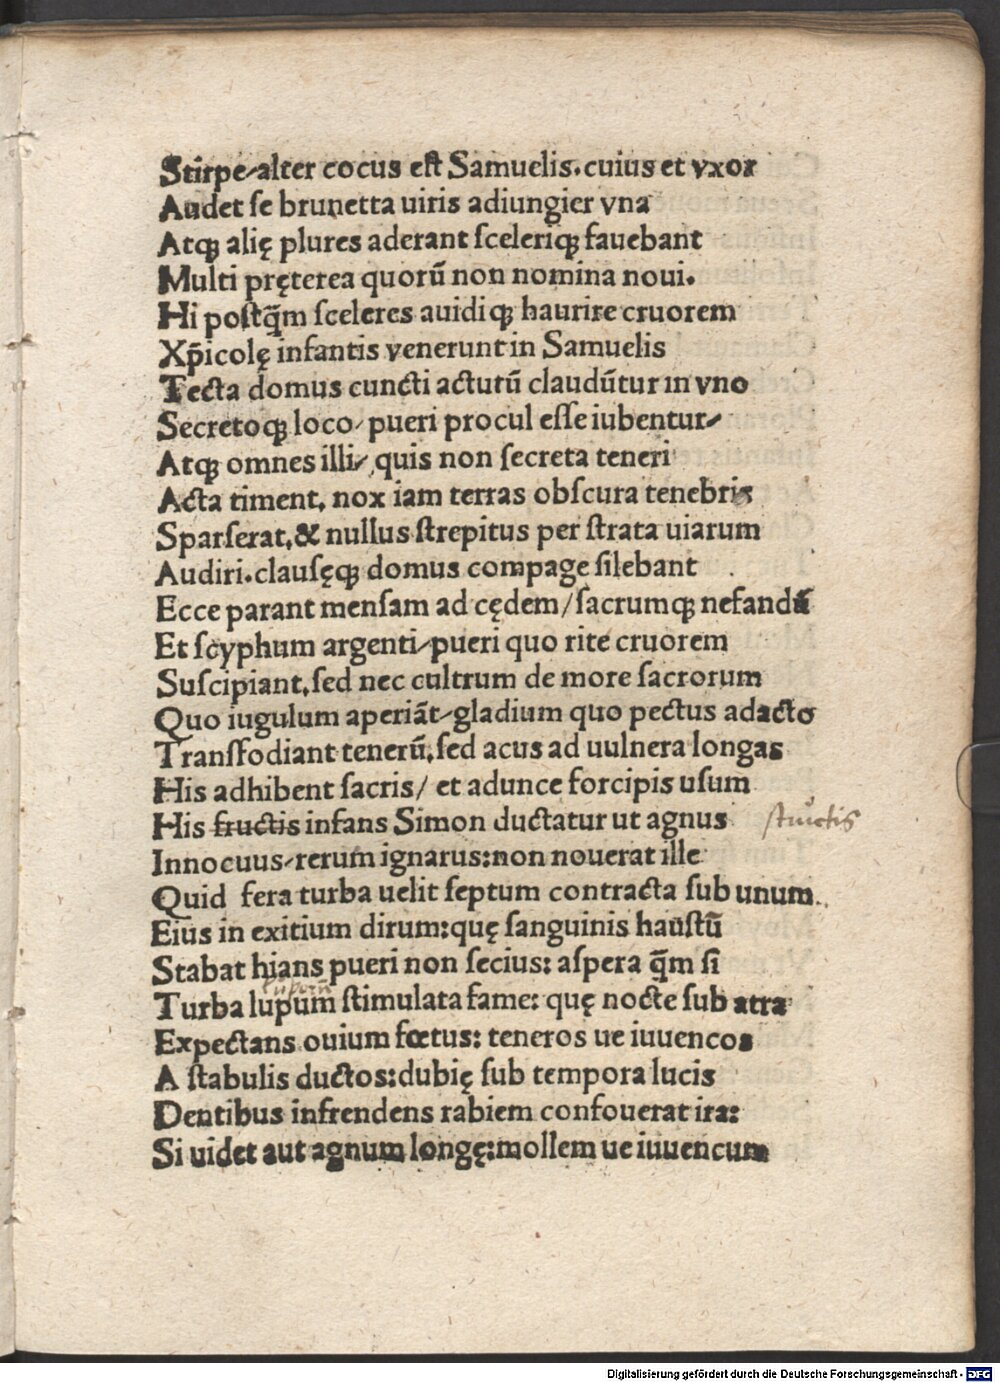 Stirpe⸍alter cocus est Samuelis.cuius et vxor
Audet se brunetta uiris adiungier vna
Atqꝫ alię plures aderant sceleriqꝫ fauebant
Multi pręterea quorū non nomina noui.
Hi postq̄m sceleres auidiqꝫ haurire cruorem
Xp̄icolę infantis venerunt in Samuelis
Tecta domus cuncti acturū claudūtur in vno
Secretoqꝫ loco⸍ pueri procul esse iubentur⸍
Atqꝫ omnes illi⸍ quis non secreta teneri
Acta timent. nox iam terras obscura tenebris
Sparserat.& nullus strepitus per strata uiarum
Audiri.clausęqꝫ domus compage silebant
Ecce parant mensam ad cędem/sacrumqꝫ nefandū
Et scyphum argenti⸍pueri quo rite cruorem
Suscipiant.sed nec cultrum de more sacrorum
Quo iugulum aperiāt⸍gladium quo pectus adacto
Transfodiant tenerū.sed acus ad uulnera longas
His adhibent sacris/ et adunce forcipis usum
His fructis infans Simon ductatur ut agnus structis
Innocuus⸍rerum ignarus:non nouerat ille
Quid fera turba uelit septum contracta sub unum.
Eius in exitium dirum:quę sanguinis haustū
Stabat hians pueri non secius: aspera q̄m si
luporū
Turba lupum stimulata fame: quę nocte sub atra
Expectans ouium fœtus: teneros ue iuuencos
A stabulis ductos:dubię sub tempora lucis
Dentibus infrendens rabiem confouerat ira:
Si uidet aut agnum longę:mollem ue iuuencum
Digitalisierung gefördert durch die Deutsche Forschungsgemeinschaft - DFG